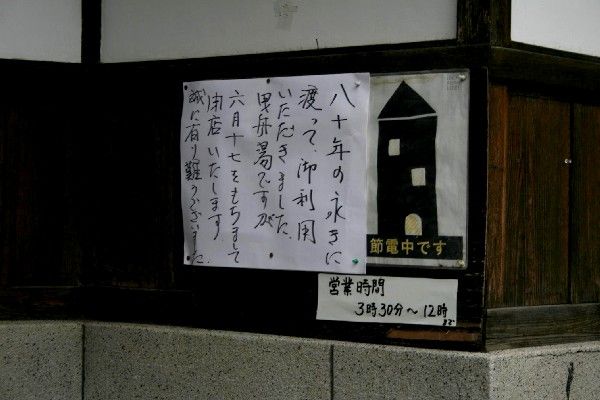 八十年の永きに
渡って、御利用
いただきました
曳舟湯ですが
六月十七をもちまして
閉店いたします。
誠に有り難うございました。
節電中です
営業時間
3時30分〜12時
まで